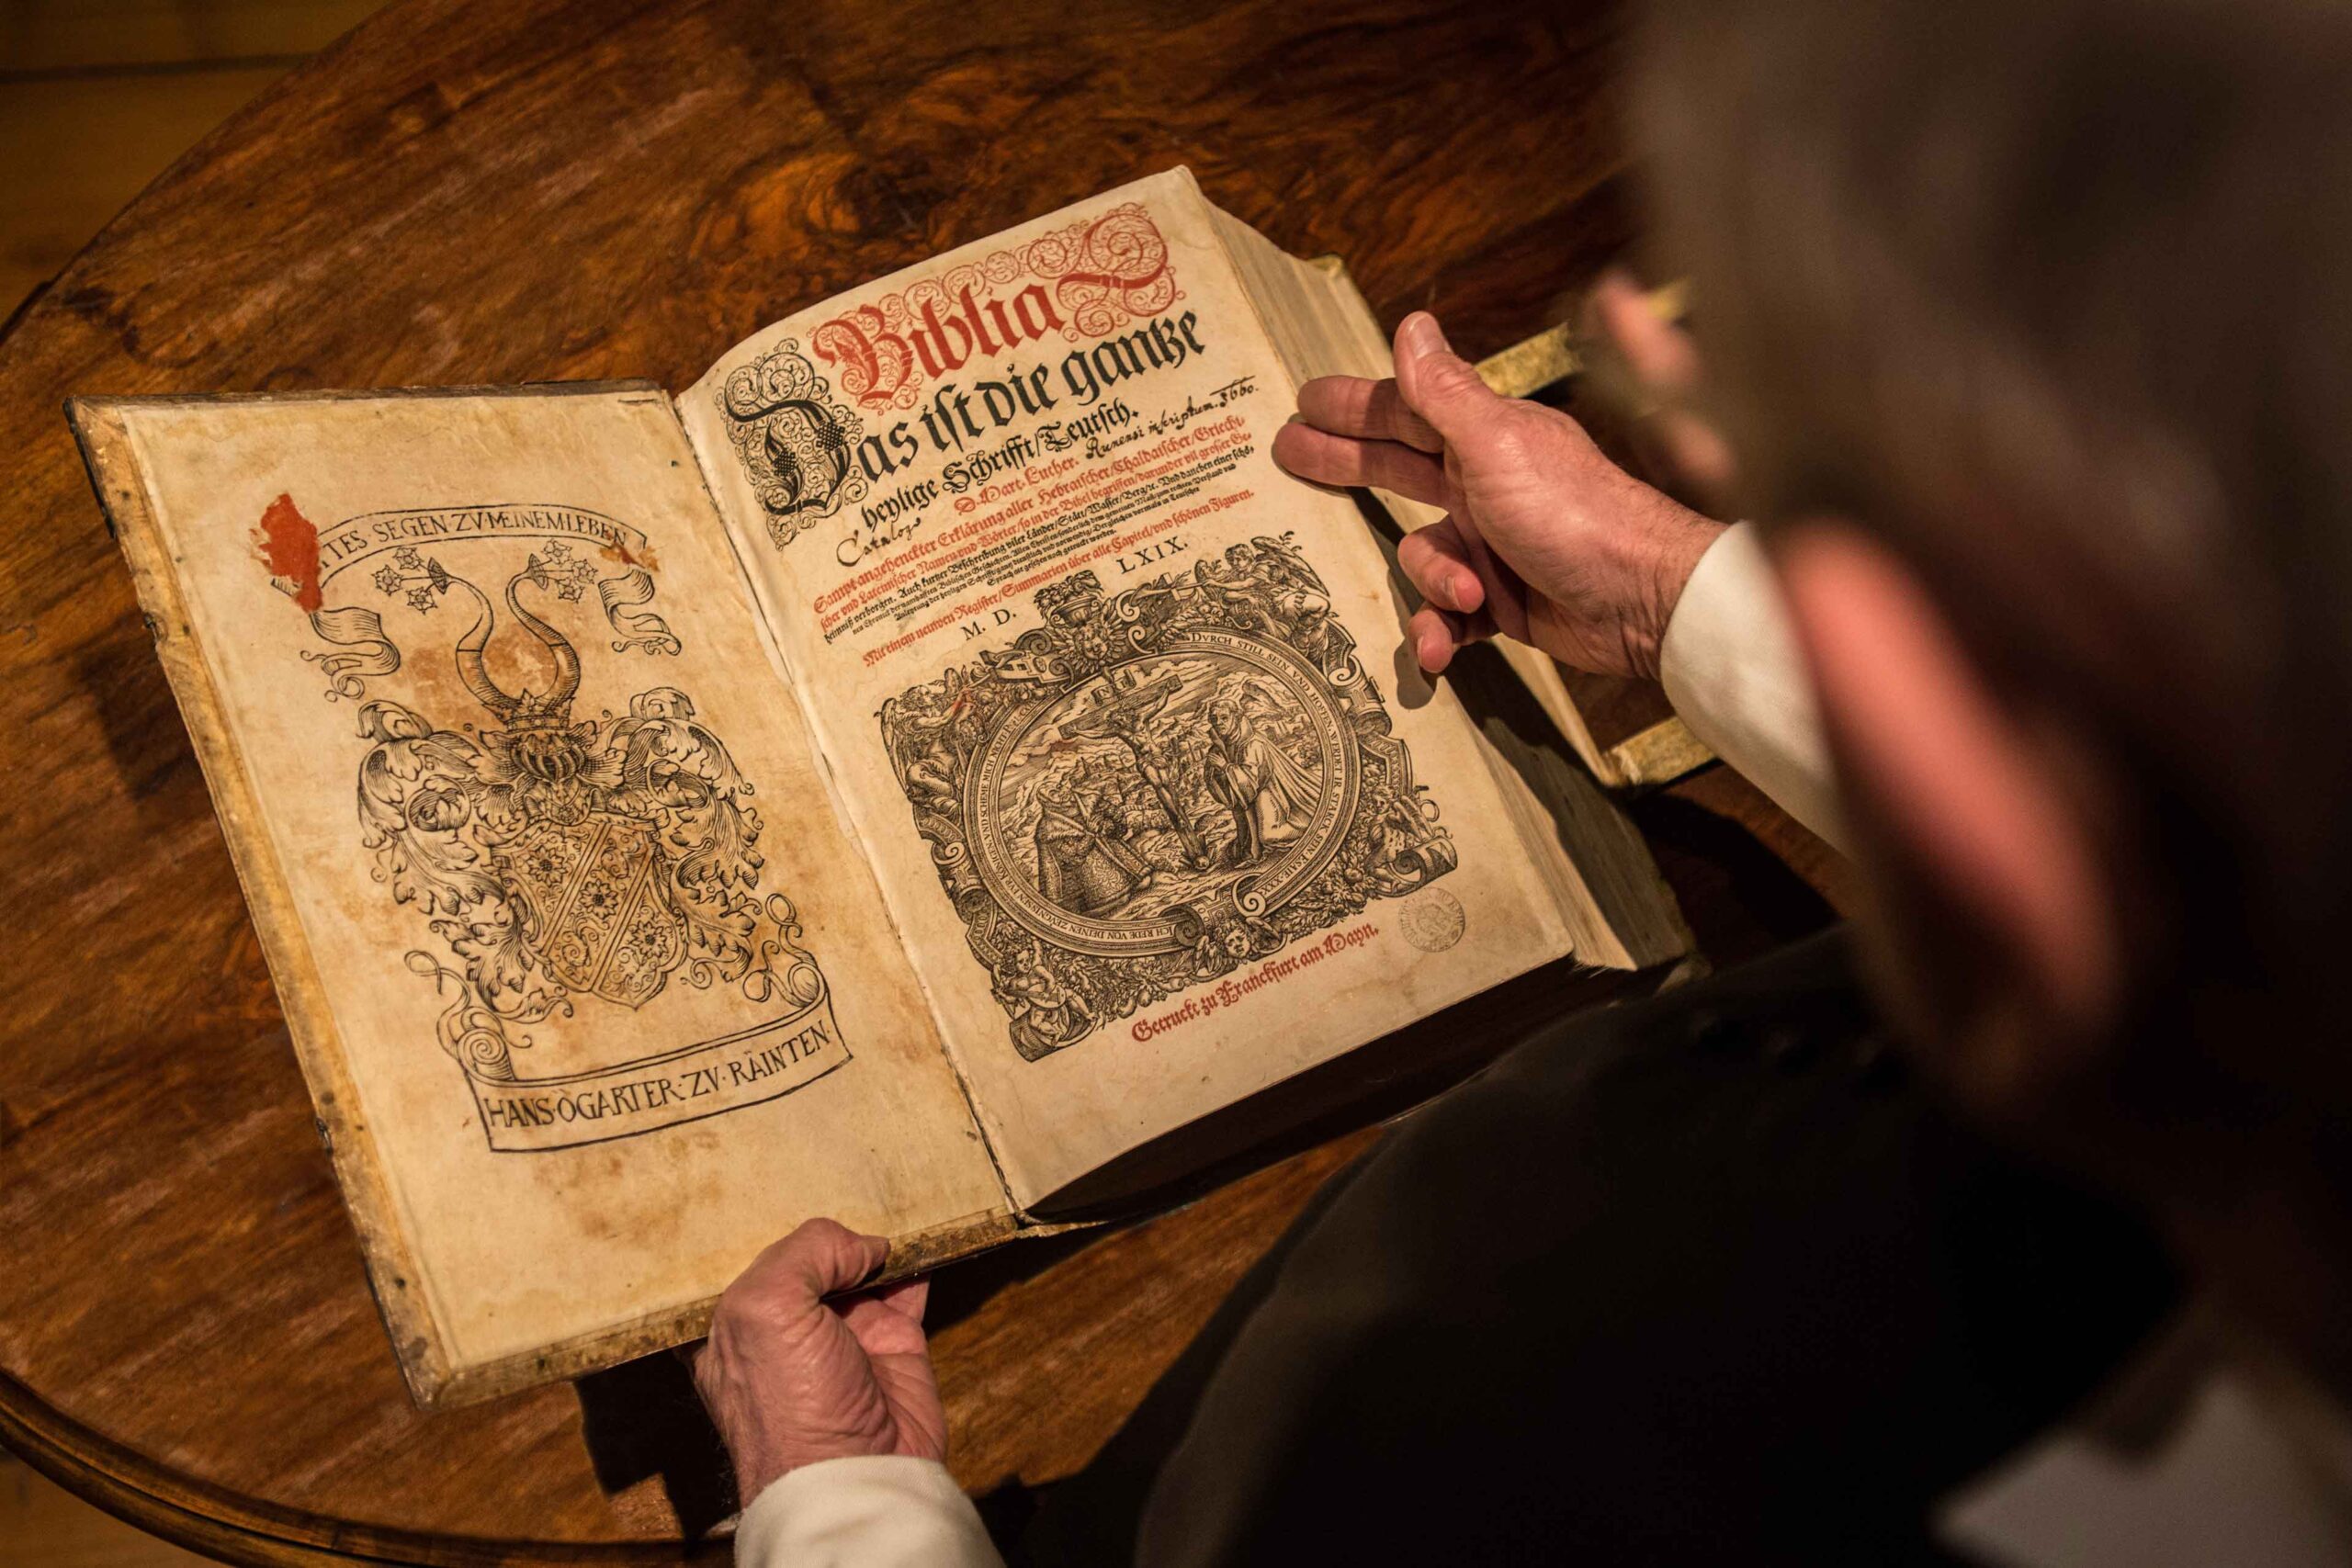 TES SEGEN·ZV·MEINEM LEBEN
HANS·OGARTER·ZV·RÄINTEN·
Biblia
Das ist die gantze
heylige Schrifft/Teutsch.
D. Mart. Luther. Runensi inscriptum. 1660.
Catalogo
Sampt angehenckter Erklärung aller Hebraischer/Chaldaischer/Griechi-
scher vnd Lateinischer Namen vnd Wörter/so in der Bibel begriffen/darunder vil grosser Ge-
heimniß verborgen. Auch kurtzer Beschreibung viler Länder/Stätt/Wasser/Berg/ꝛc. Vnd
Mit einem neuwen Register/Summarien über alle Capitel/vnd schönen Figuren.
M. D. LXIX.
DVRCH STILL SEIN VND HOFFEN WERDET IR STARCK SEIN ESAIE XXX
ICH REDE VON DEINEN ZEVGNISSEN ZVN KÖNIGEN VND SCHEME MICH
Getruckt zu Franckfurt am Mayn.